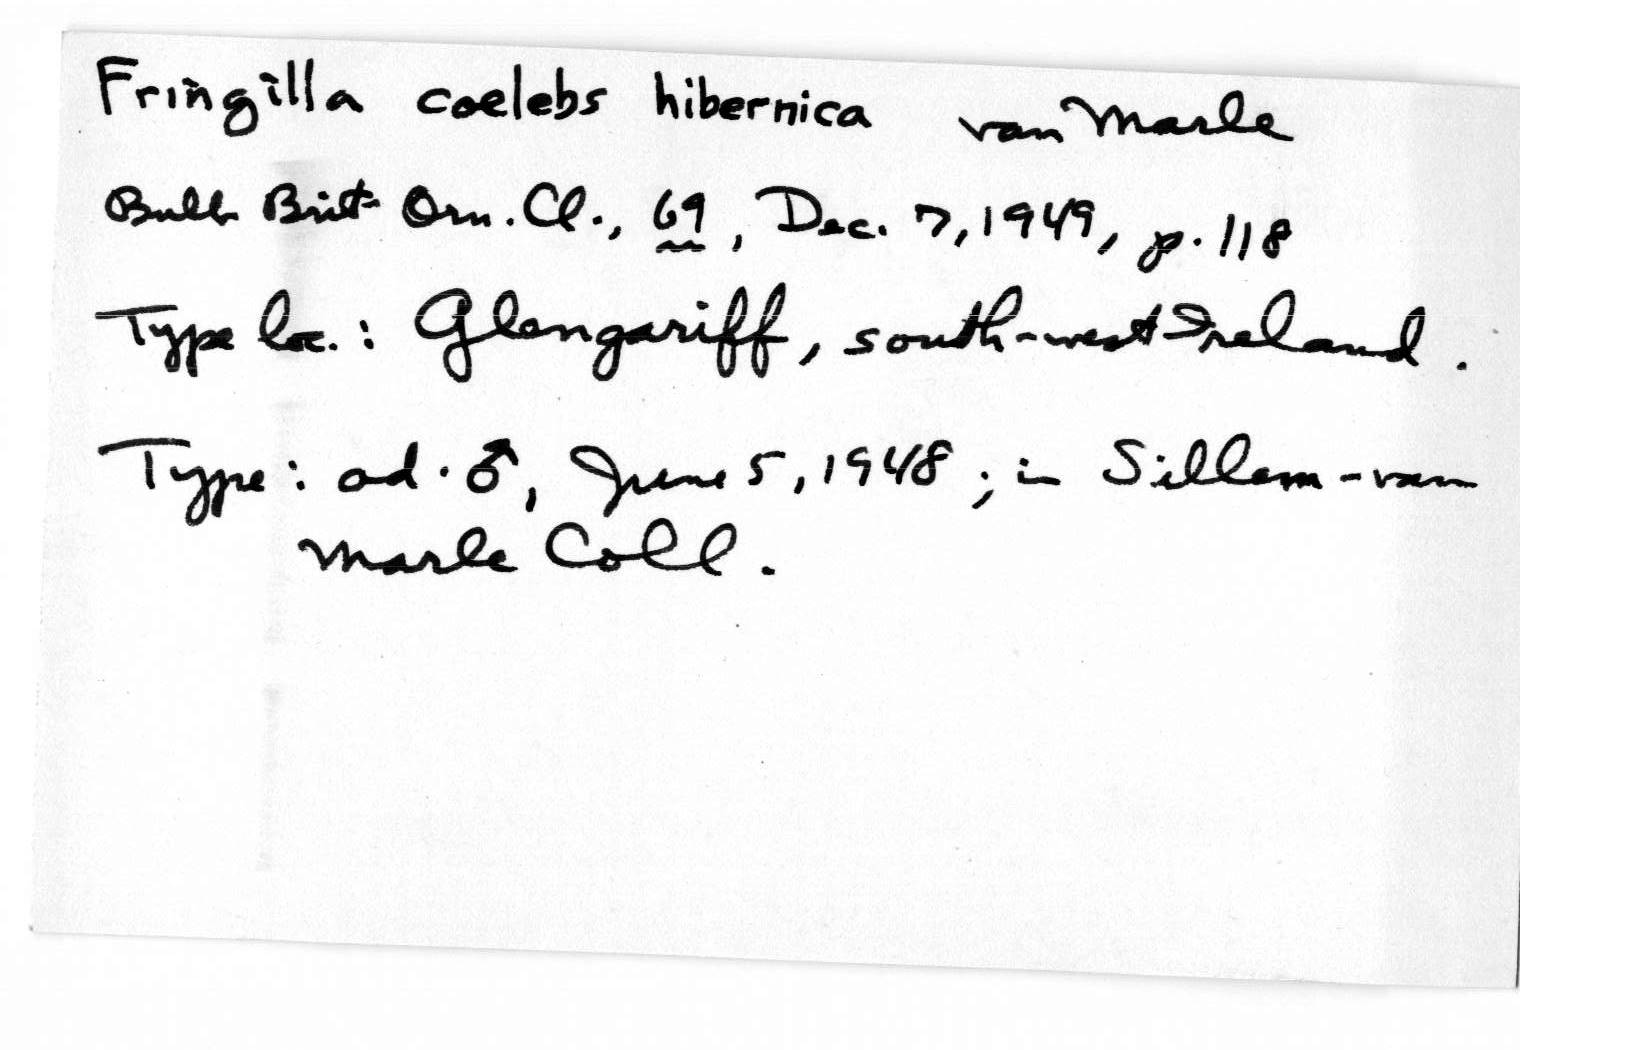 Fringilla coelebs hibernica van Marle
Bull. Brit. Orn. Cl., 69, Dec. 7, 1949, p. 118
Type loc.: Glengariff, south-west Ireland.
Type: ad. ♂, June 5, 1948; in Sillem-van
Marle Coll.